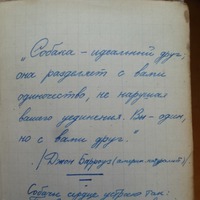 „Собака – идеальный друг:
она разделяет с вами
одиночество, не нарушая
вашего уединения. Вы – один,
но с вами друг."
/Джон Берроуз (америк. натуралист)/
Собачье сердце устроено так: